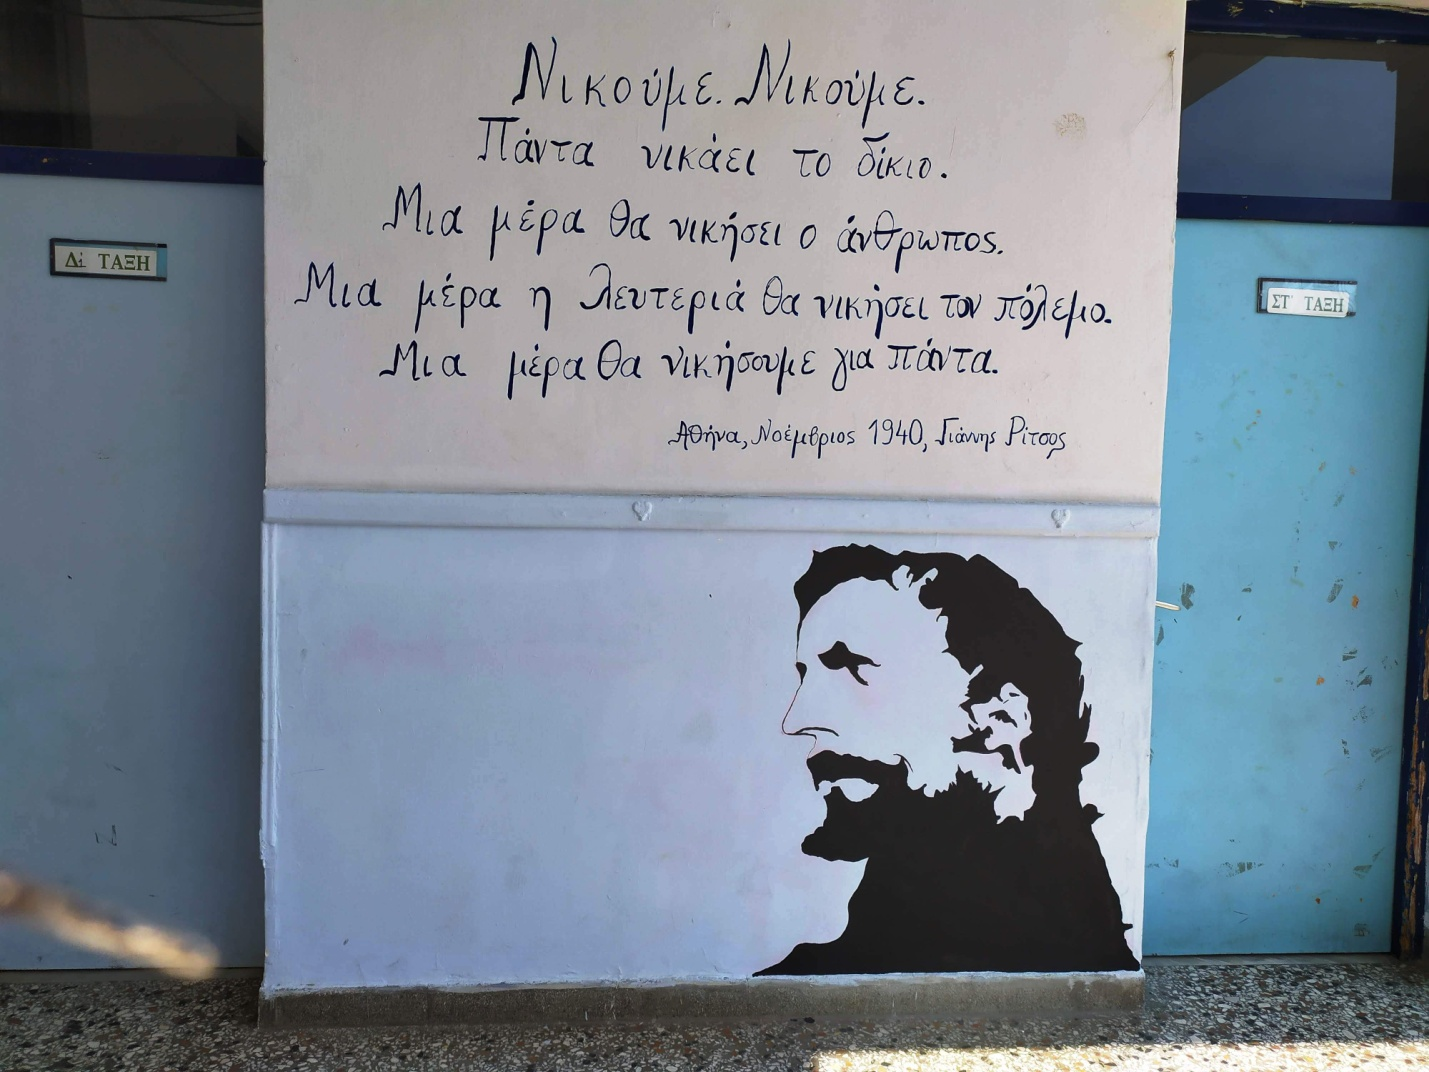 Νικούμε. Νικούμε.
Πάντα νικάει το δίκιο.
Μια μέρα θα νικήσει ο άνθρωπος.
Μια μέρα η λευτεριά θα νικήσει τον πόλεμο.
Μια μέρα θα νικήσουμε για πάντα.
Αθήνα, Νοέμβριος 1940, Γιάννης Ρίτσος
Δ΄ ΤΑΞΗ
ΣΤ΄ ΤΑΞΗ